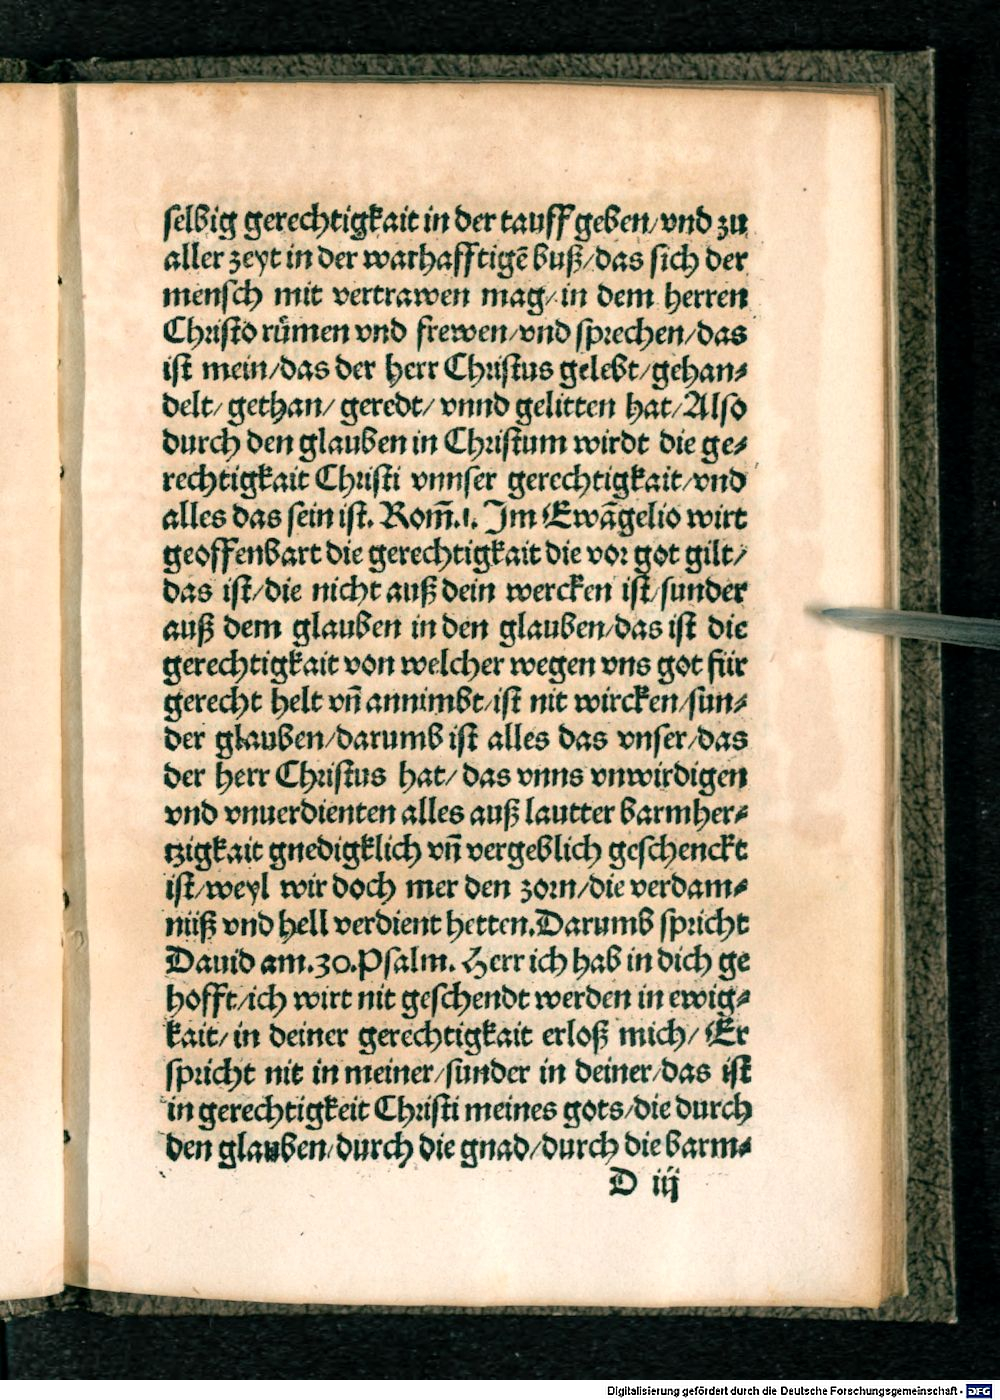 selbig gerechtigkait in der tauff geben/vnd zu
aller zeyt in der warhafftigē buß/das sich der
mensch mit vertrawen mag/in dem herren
Christo rümen vnd frewen/vnd sprechen/das
ist mein/das der herr Christus gelebt/gehan⸗
delt/gethan/geredt/vnnd gelitten hat/Also
durch den glauben in Christum wirdt die ge⸗
rechtigkait Christi vnnser gerechtigkait/vnd
alles das sein ist. Rom̄.1. Im Ewāgelio wirt
geoffenbart die gerechtigkait die vor got gilt/
das ist/die nicht auß dein wercken ist/sunder
auß dem glauben in den glauben/das ist die
gerechtigkait von welcher wegen vns got für
gerecht helt vn̄ annimbt/ist nit wircken/sun⸗
der glauben/darumb ist alles das vnser/das
der herr Christus hat/das vnns vnwirdigen
vnd vnuerdienten alles auß lautter barmher⸗
tzigkait gnedigklich vn̄ vergeblich geschenckt
ist/weyl wir doch mer den zorn/die verdam⸗
nüß vnd hell verdient hetten.Darumb spricht
Dauid am.30.Psalm. Herr ich hab in dich ge
hofft/ich wirt nit geschendt werden in ewig⸗
kait/in deiner gerechtigkait erloß mich/Er
spricht nit in meiner/sunder in deiner/das ist
in gerechtigkeit Christi meines gots/die durch
den glauben/durch die gnad/durch die barm⸗
D iij
Digitalisierung gefördert durch die Deutsche Forschungsgemeinschaft - DFG